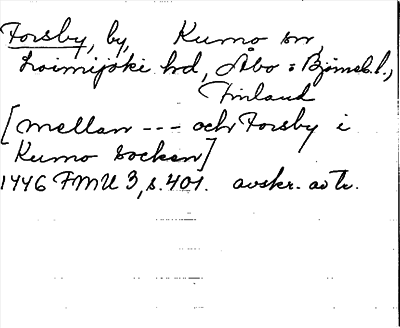 Forsby, by, Kumo sn,
Loimijoki hd, Åbo o Björneb. l.,
Finland
[mellan --- och Forsby i
Kumo socken]
1446 FMU 3, s. 401. avskr. av tr.